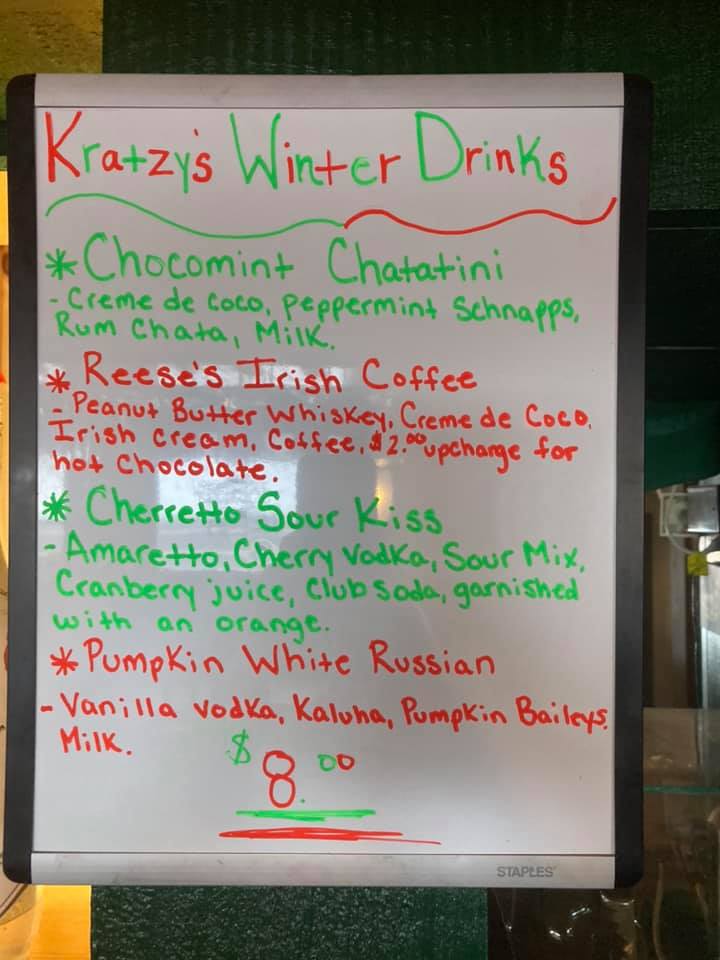 Kratzy's Winter Drinks
* Chocomint Chatatini
- Creme de coco, Peppermint Schnapps,
Rum Chata, Milk.
* Reese's Irish Coffee
- Peanut Butter Whiskey, Creme de Coco,
Irish Cream, Coffee, $2.00 upcharge for
hot chocolate.
* Cherretto Sour Kiss
- Amaretto, Cherry Vodka, Sour Mix,
Cranberry juice, Club Soda, garnished
with an orange.
* Pumpkin White Russian
- Vanilla vodka, Kaluha, Pumpkin Baileys,
Milk.
$8.00
STAPLES